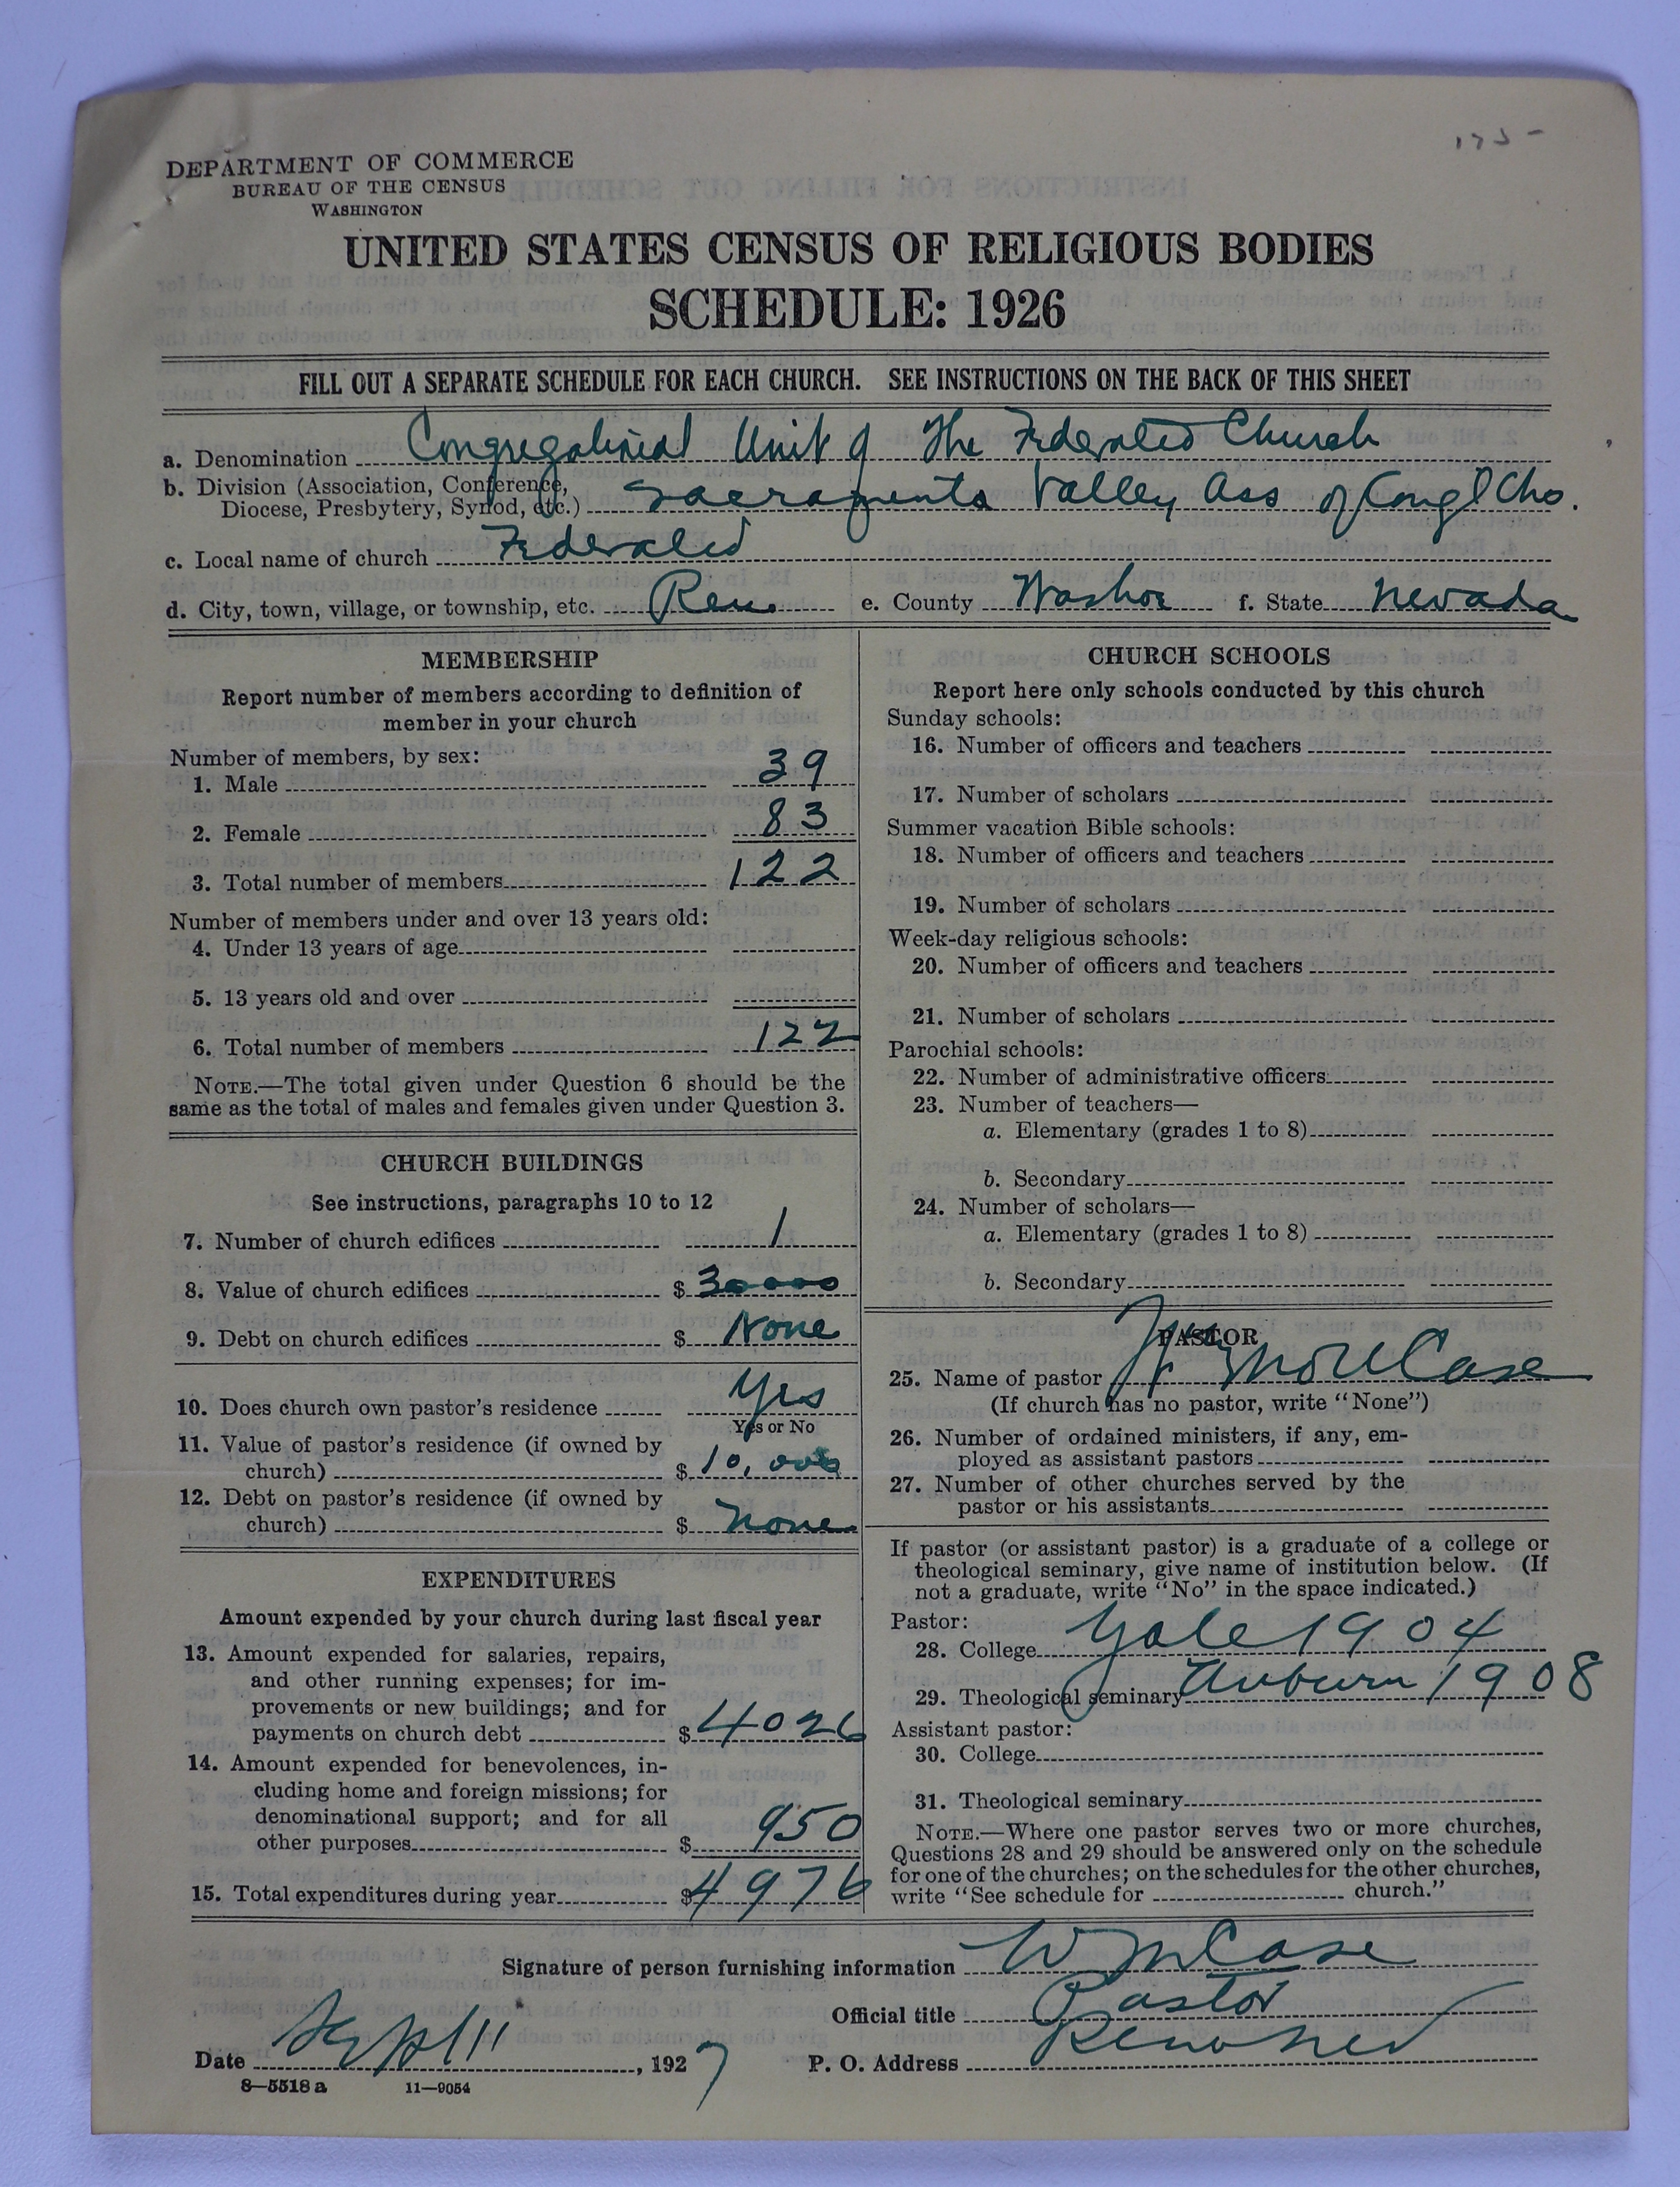 175-
DEPARTMENT OF COMMERCE
BUREAU OF THE CENSUS
WASHINGTON
UNITED STATES CENSUS OF RELIGIOUS BODIES
SCHEDULE: 1926
FILL OUT A SEPARATE SCHEDULE FOR EACH CHURCH. SEE INSTRUCTIONS ON THE BACK OF THIS SHEET
a. Denomination Congregational Unit of The Federated Church
b. Division (Association, Conference,
Diocese, Presbytery, Synod, etc.) Sacramento Valley Ass of Congl Chs.
c. Local name of church Federated
d. City, town, village, or township, etc. Reno e. County Washoe f. State Nevada
MEMBERSHIP
Report number of members according to definition of
member in your church
Number of members, by sex:
1. Male 39
2. Female 83
3. Total number of members 122
Number of members under and over 13 years old:
4. Under 13 years of age
5. 13 years old and over
6. Total number of members 122
NOTE.—The total given under Question 6 should be the
same as the total of males and females given under Question 3.
CHURCH BUILDINGS
See instructions, paragraphs 10 to 12
7. Number of church edifices 1
8. Value of church edifices $ 30000
9. Debt on church edifices $ None
10. Does church own pastor's residence Yes
Yes or No
11. Value of pastor's residence (if owned by
church) $ 10,000
12. Debt on pastor's residence (if owned by
church) $ None
EXPENDITURES
Amount expended by your church during last fiscal year
13. Amount expended for salaries, repairs,
and other running expenses; for im-
provements or new buildings; and for
payments on church debt $ 4026
14. Amount expended for benevolences, in-
cluding home and foreign missions; for
denominational support; and for all
other purposes $ 950
15. Total expenditures during year $ 4976
CHURCH SCHOOLS
Report here only schools conducted by this church
Sunday schools:
16. Number of officers and teachers
17. Number of scholars
Summer vacation Bible schools:
18. Number of officers and teachers
19. Number of scholars
Week-day religious schools:
20. Number of officers and teachers
21. Number of scholars
Parochial schools:
22. Number of administrative officers
23. Number of teachers—
a. Elementary (grades 1 to 8)
b. Secondary
24. Number of scholars—
a. Elementary (grades 1 to 8)
b. Secondary
PASTOR
25. Name of pastor Case
(If church has no pastor, write "None")
26. Number of ordained ministers, if any, em-
ployed as assistant pastors
27. Number of other churches served by the
pastor or his assistants
If pastor (or assistant pastor) is a graduate of a college or
theological seminary, give name of institution below. (If
not a graduate, write "No" in the space indicated.)
Pastor:
28. College Yale 1904
29. Theological seminary Auburn 1908
Assistant pastor:
30. College
31. Theological seminary
NOTE.—Where one pastor serves two or more churches,
Questions 28 and 29 should be answered only on the schedule
for one of the churches; on the schedules for the other churches,
write "See schedule for church."
Signature of person furnishing information W M Case
Official title Pastor
Date Sept 11, 1927 P. O. Address Reno Nev
8—5518 a 11—9054